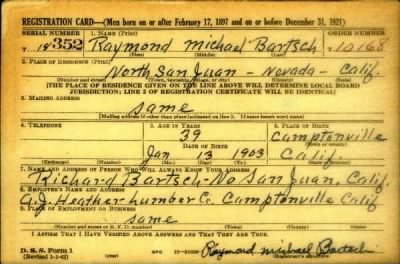 REGISTRATION CARD—(Men born on or after February 17, 1897 and on or before December 31, 1921)
SERIAL NUMBER 1. NAME (Print) ORDER NUMBER
352 Raymond michael Bartsch 10168
2. PLACE OF RESIDENCE (Print)
North San Juan – Nevada – Calif.
(Number and street) (Town, township, village, or city) (County) (State)
[THE PLACE OF RESIDENCE GIVEN ON THE LINE ABOVE WILL DETERMINE LOCAL BOARD
JURISDICTION; LINE 2 OF REGISTRATION CERTIFICATE WILL BE IDENTICAL]
3. MAILING ADDRESS
same
[Mailing address if other than place indicated on line 2. If same insert word same]
4. TELEPHONE 5. AGE IN YEARS 6. PLACE OF BIRTH
39 Camptonville
DATE OF BIRTH (Town or county)
Jan 13 1903 Calif
(Exchange) (Number) (Mo.) (Day) (Yr.) (State or country)
7. NAME AND ADDRESS OF PERSON WHO WILL ALWAYS KNOW YOUR ADDRESS
Richard Bartsch - No San Juan, Calif.
8. EMPLOYER'S NAME AND ADDRESS
Heather Lumber Co. Camptonville Calif
9. PLACE OF EMPLOYMENT OR BUSINESS
same
(Number and street or R. F. D. number) (Town) (County) (State)
I AFFIRM THAT I HAVE VERIFIED ABOVE ANSWERS AND THAT THEY ARE TRUE.
D. S. S. Form 1
(Revised 1-1-42) (over) Raymond michael Bartsch